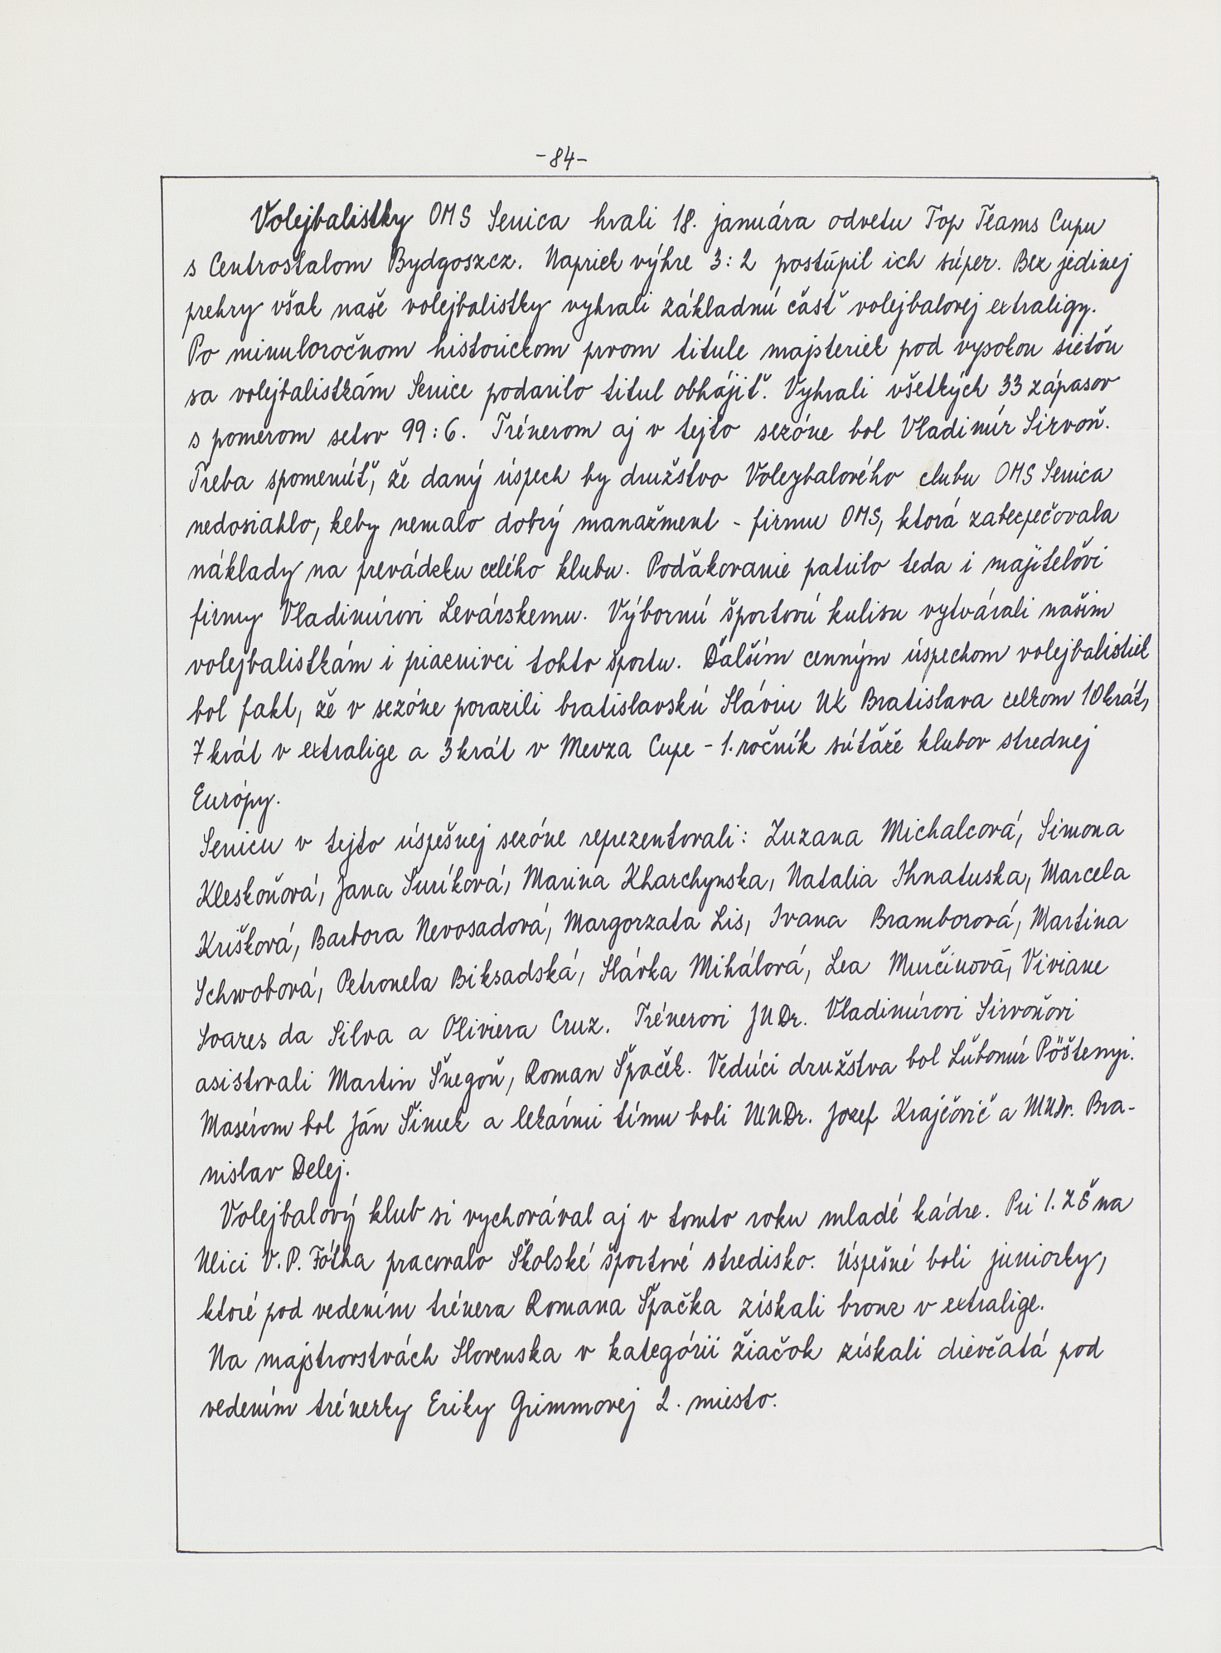 -84-
Volejbalistky OMS Senica hrali 18. januára odvetu Top Teams Cupu
s Centrostalom Bydgoszcz. Napriek výhre 3:2 postúpil ich súper. Bez jedinej
prehry však naše volejbalistky vyhrali základnú časť volejbalovej extraligy.
Po minuloročnom historickom prvom titule majsteriek pod vysokou sieťou
sa volejbalistkám Senice podarilo titul obhájiť. Vyhrali všetkých 33 zápasov
s pomerom setov 99:6. Trénerom aj v tejto sezóne bol Vladimír Sirvoň.
Treba spomenúť, že daný úspech by družstvo Voleybalového clubu OMS Senica
nedosiahlo, keby nemalo dobrý manažment - firmu OMS, ktorá zabezpečovala
náklady na prevádzku celého klubu. Poďakovanie patrilo teda i majiteľovi
firmy Vladimírovi Levárskemu. Výbornú športovú kulisu vytvárali našim
volejbalistkám i priaznivci tohto športu. Ďalším cenným úspechom volejbalistiek
bol fakt, že v sezóne porazili bratislavskú Sláviu UK Bratislava celkom 10krát,
7krát v extralige a 3krát v Mevza Cupe - 1. ročník súťaže klubov strednej
Európy.
Senicu v tejto úspešnej sezóne reprezentovali: Zuzana Michalcová, Simona
Kleskoňová, Jana Šuríková, Marina Kharchynska, Natalia Ihnatuska, Marcela
Krišková, Barbora Nevosadová, Margorzata Lis, Ivana Bramborová, Martina
Schwobová, Petronela Biksadská, Slávka Mihálová, Lea Murčinová, Viviane
Soares da Silva a Oliviera Cruz. Trénerovi JUDr. Vladimírovi Sirvoňovi
asistovali Martin Šnegoň, Roman Špaček. Vedúci družstva bol Ľubomír Pöštenyi.
Masérom bol Ján Šimek a lekármi tímu boli MUDr. Jozef Krajčovič a MUDr. Bra-
nislav Delej.
Volejbalový klub si vychovával aj v tomto roku mladé kádre. Pri 1. ZŠ na
Ulici V. P. Tótha pracovalo Školské športové stredisko. Úspešné boli juniorky,
ktoré pod vedením trénera Romana Špačka získali bronz v extralige.
Na majstrovstvách Slovenska v kategórii žiačok získali dievčatá pod
vedením trénerky Eriky Grimmovej 2. miesto.